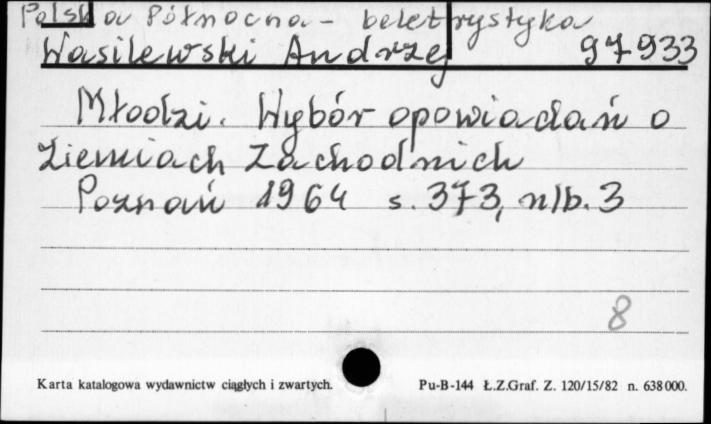 Polska Północna - beletrystyka
Wasilewski Andrzej 97933
Młodzi. Wybór opowiadań o
Ziemiach Zachodnich
Poznań 1964 s. 373, nlb. 3
8
Karta katalogowa wydawnictw ciągłych i zwartych. Pu-B-144 Ł.Z.Graf. Z. 120/15/82 n. 638000.